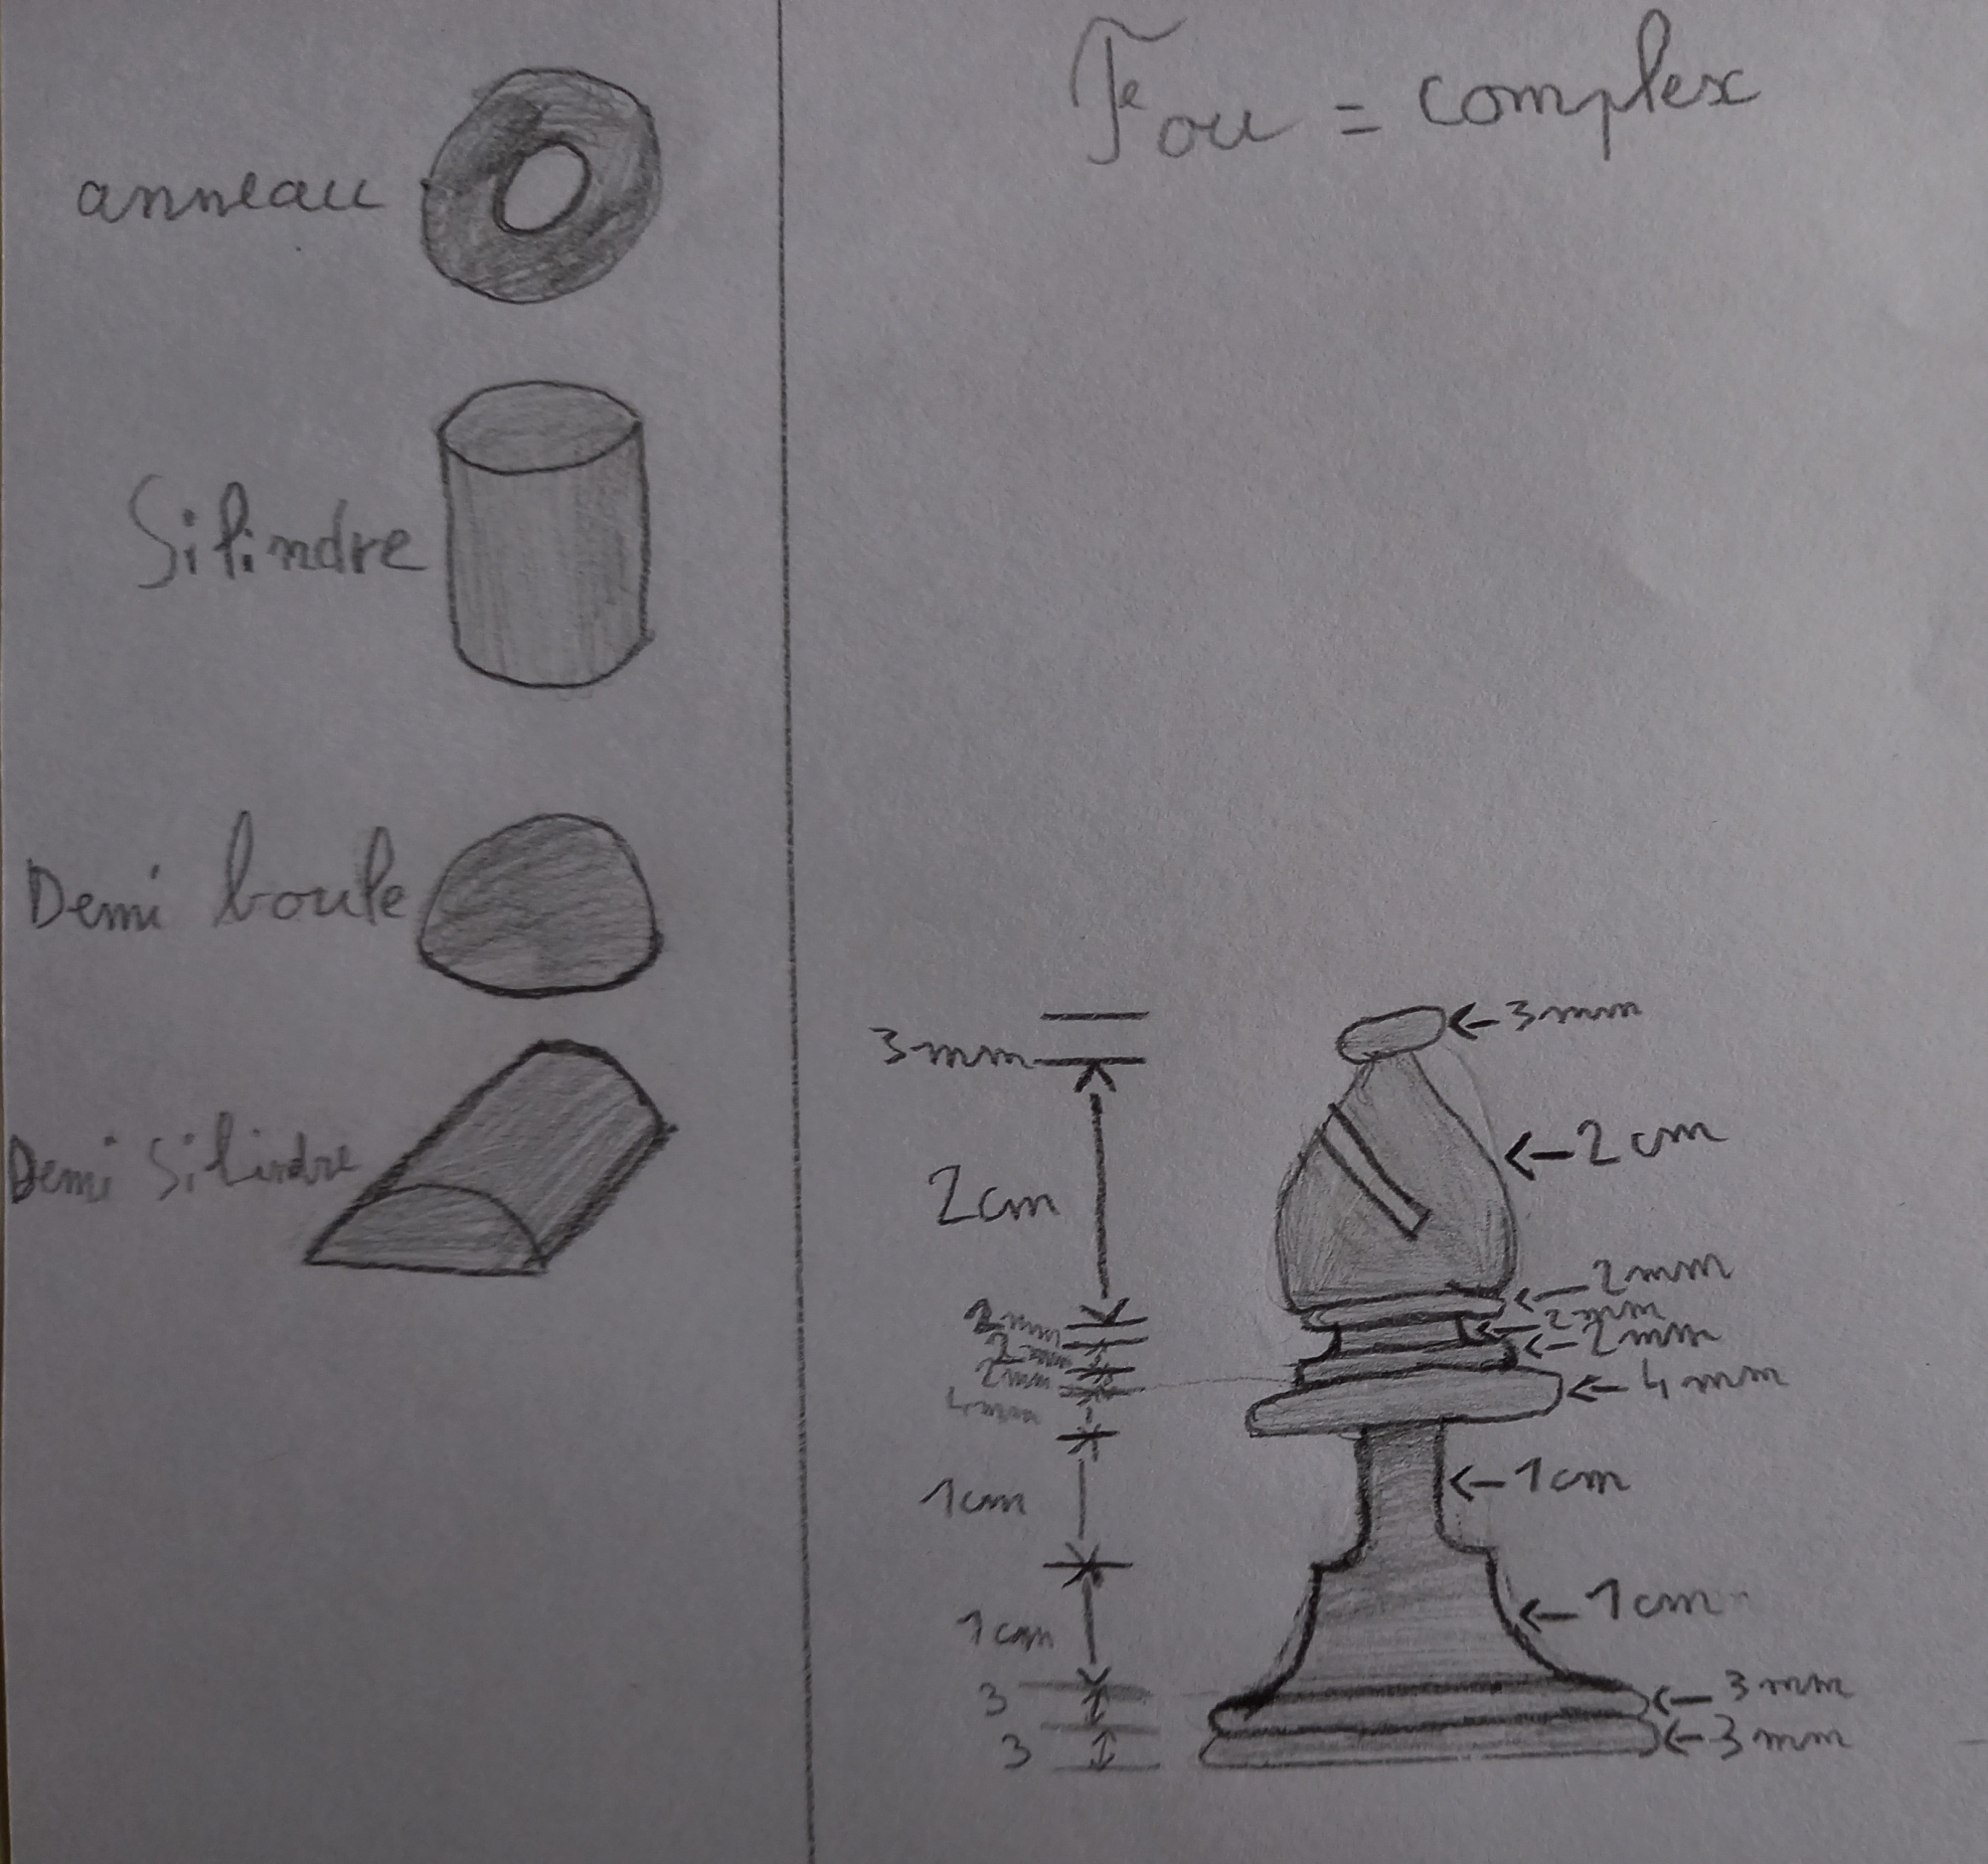 anneau
Silindre
Demi boule
Demi Silindre
Fou = complex
3mm
2cm
2mm
2mm
2mm
4mm
1cm
1cm
3
3
3mm
2cm
2mm
2mm
2mm
4mm
1cm
1cm
3mm
3mm